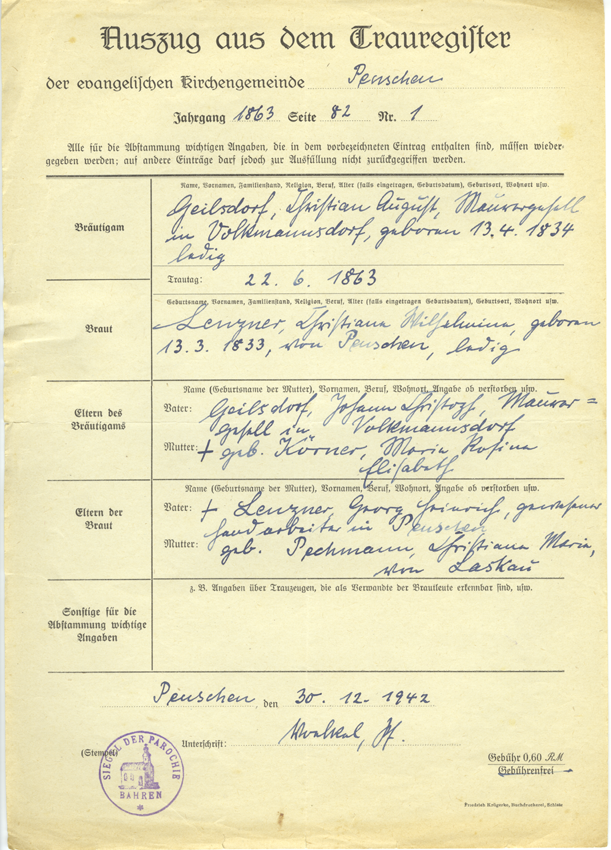 Auszug aus dem Trauregister
der evangelischen Kirchengemeinde Penschen
Jahrgang 1863 Seite 82 Nr. 1
Alle für die Abstammung wichtigen Angaben, die in dem vorbezeichneten Eintrag enthalten sind, müssen wieder-
gegeben werden; auf andere Einträge darf jedoch zur Ausfüllung nicht zurückgegriffen werden.
Bräutigam
Name, Vornamen, Familienstand, Religion, Beruf, Alter (falls eingetragen, Geburtsdatum), Geburtsort, Wohnort usw.
Geilsdorf, Christian August, Maurergesell
in Volkmannsdorf, geboren 13.4.1834
ledig
Trautag: 22.6.1863
Braut
Geburtsname, Vornamen, Familienstand, Religion, Beruf, Alter (falls eingetragen, Geburtsdatum), Geburtsort, Wohnort usw.
Lenzner, Christiana Wilhelmina, geboren
13.3.1833, von Penschen, ledig
Eltern des
Bräutigams
Name (Geburtsname der Mutter), Vornamen, Beruf, Wohnort, Angabe ob verstorben usw.
Vater: Geilsdorf, Johann Christoph, Maurer=
gesell in Volkmannsdorf
Mutter: + geb. Körner, Maria Rosina
Elisabeth
Eltern der
Braut
Name (Geburtsname der Mutter), Vornamen, Beruf, Wohnort, Angabe ob verstorben usw.
Vater: + Lenzner, Georg Heinrich, gewesener
Handarbeiter in Penschen
Mutter: geb. Pechmann, Christiana Maria,
von Laskau
Sonstige für die
Abstammung wichtige
Angaben
z. B. Angaben über Trauzeugen, die als Verwandte der Brautleute erkennbar sind, usw.
Penschen, den 30.12.1942
(Stempel) Unterschrift:
SIEGEL DER PAROCHIE
BAHREN
Gebühr 0,60 RM
Gebührenfrei